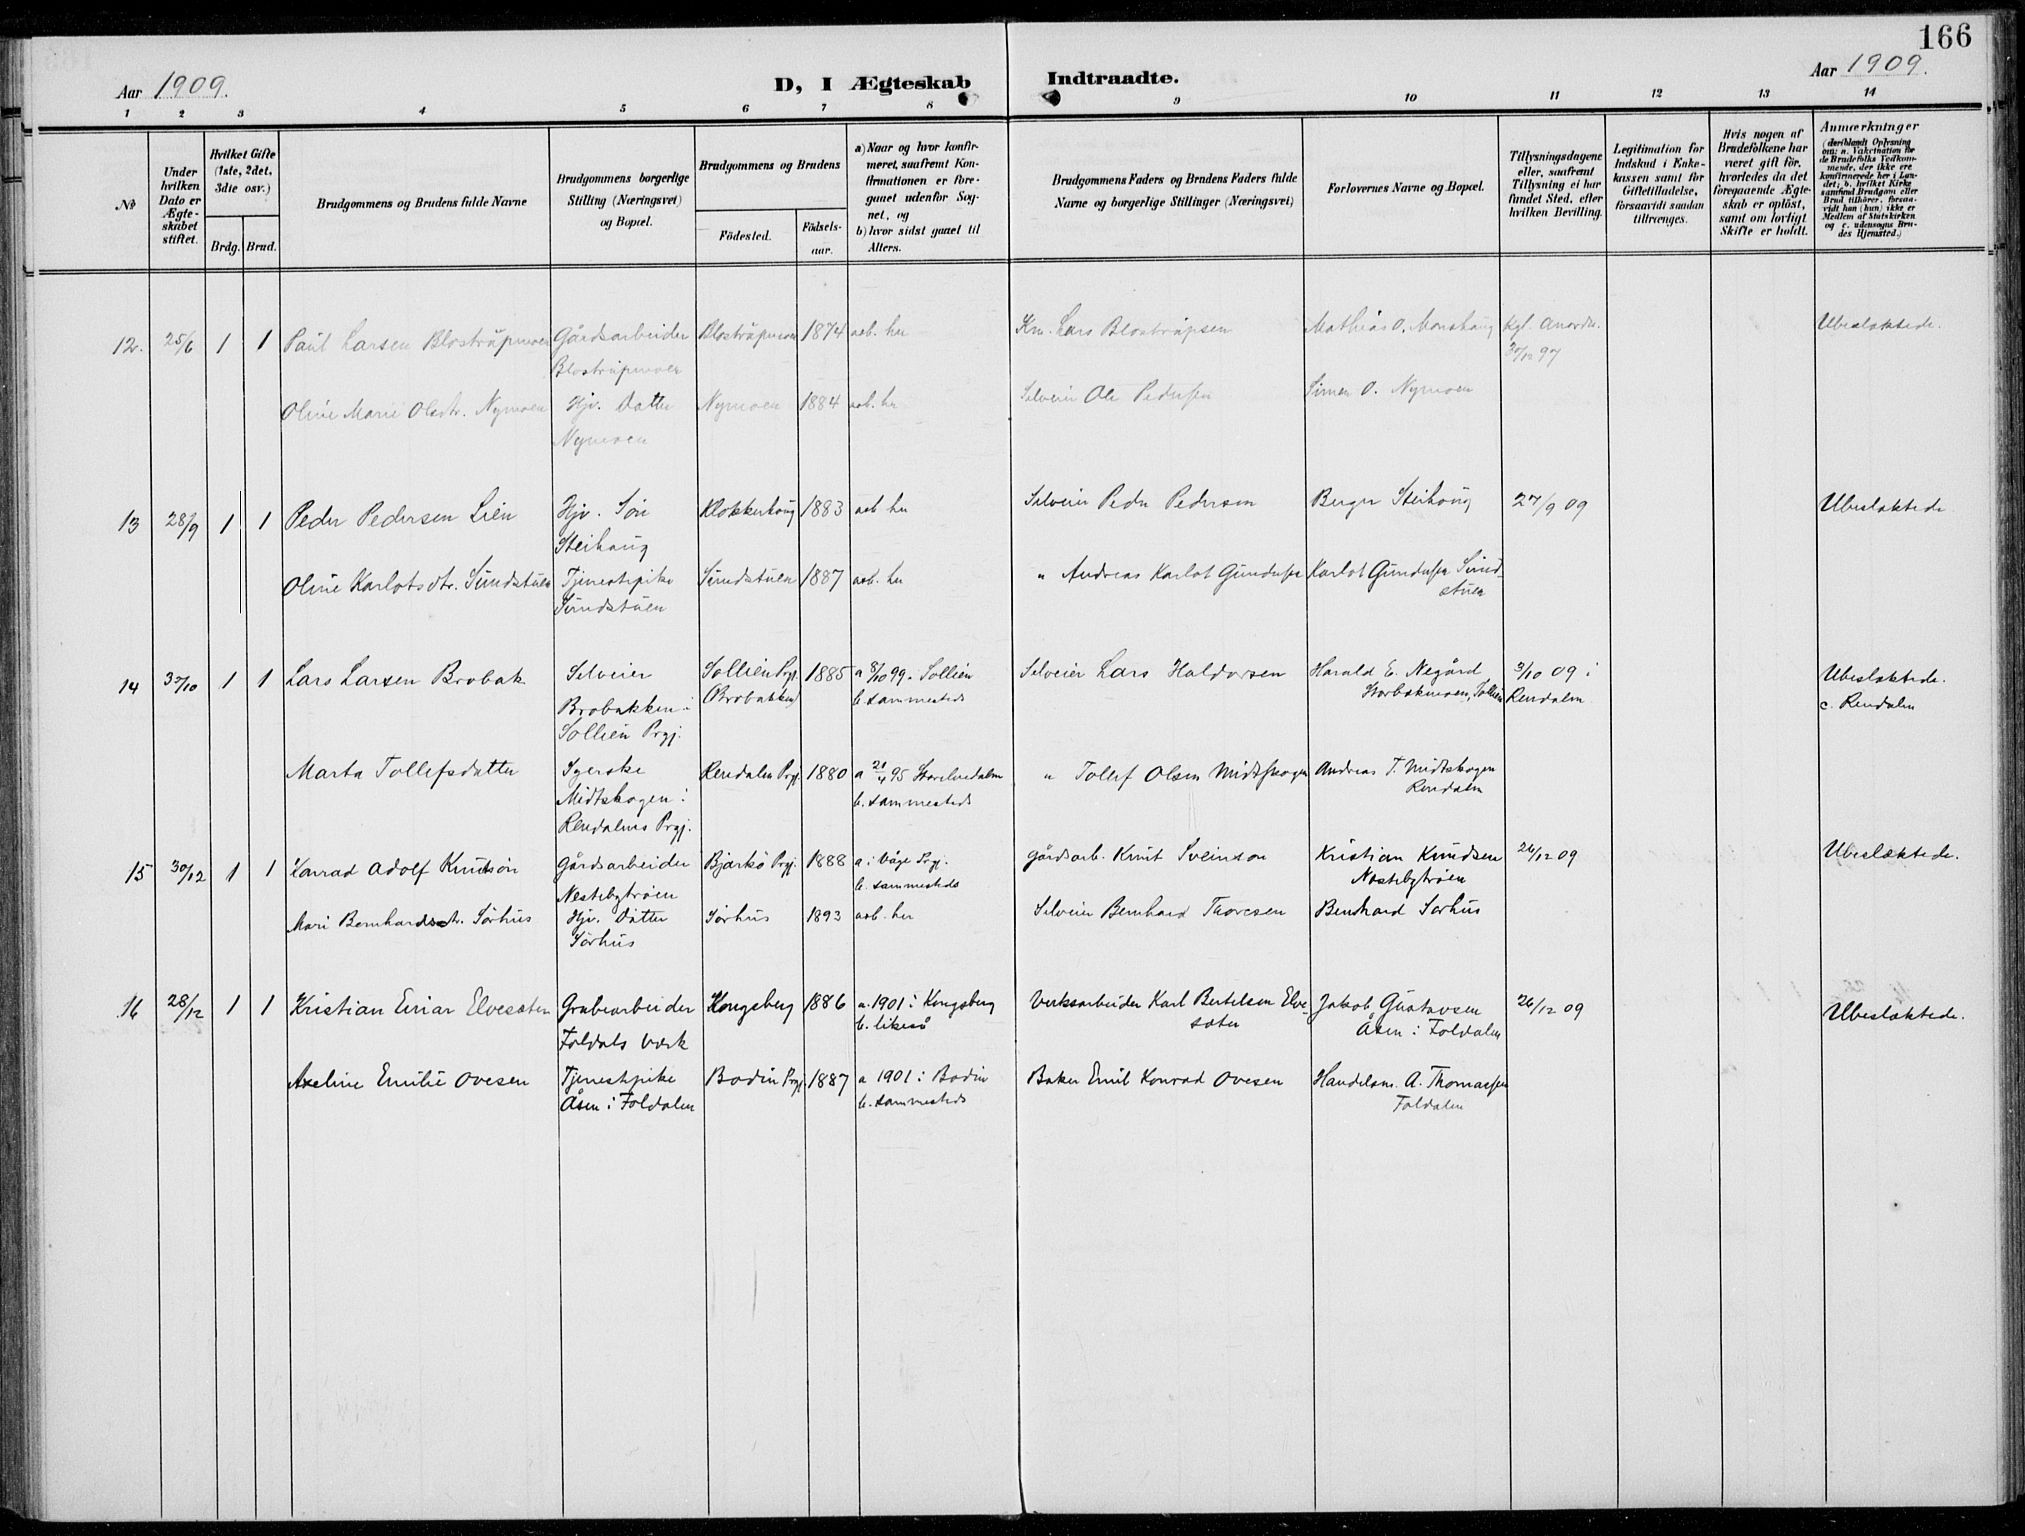 166
Aar 1909. D, I Ægteskab Indtraadte. Aar 1909.
1 2 3 4 5 6 7 8 9 10 11 12 13 14
№
Under hvilken Dato er Ægteskabet stiftet.
Hvilket Gifte (1ste, 2det, 3die osv.)
Brdg. Brud.
Brudgommens og Brudens fulde Navne
Brudgommens borgerlige Stilling (Næringsvei) og Bopæl.
Brudgommens og Brudens
Födested. Födselsaar.
a) Naar og hvor konfirmeret, saafremt Konfirmationen er foregaaet udenfor Sognet, og
b) hvor sidst gaaet til Alters.
Brudgommens Faders og Brudens Faders fulde Navne og borgerlige Stillinger (Næringsvei)
Forlovernes Navne og Bopæl.
Tillysningsdagene eller, saafremt Tillysning ei har fundet Sted, efter hvilken Bevilling.
Legitimation for Indskud i Enkekassen samt for Giftetilladelse, forsaavidt saadan tiltrænges.
Hvis nogen af Brudefolkene har været gift för, hvorledes da det foregaaende Ægteskab er oplöst, samt om lovligt Skifte er holdt.
Anmærkninger
(deriblandt Oplysning om: a. Vakcination for de Brudefolks Vedkommende, der ikke ere konfirmerede her i Landet; b. hvilket Kirkesamfund Brudgom eller Brud tilhörer, forsaavidt han (hun) ikke er Medlem af Statskirken og c. udensogns Brudes Hjemsted.)
12. 25/6 1 1 Paul Larsen Blostrupmoen Gårdsarbeider Blostrupmoen 1874 aob. her Km. Lars Blostrupsen Mathias O. Monshaug Kgl. Anordn. Ubeslæktede.
Blostrupmoen 30/12 97
Oline Marie Olsdtr. Nymoen Hjv. Datter Nymoen 1884 aob. her Selveier Ole Pedersen Simen O. Nymoen
Nymoen
13 28/9 1 1 Peder Pedersen Lien Hjv. Søn Klokkerhaug 1883 aob her Selveier Peder Pedersen Berger Steihaug 27/9 09 Ubeslæktede
Steihaug
Oline Karlotsdtr. Sundstuen Tjenestepike Sundstuen 1887 aob. her " Andreas Karlot Gundersen Karlot Gundersen Sund-
Sundstuen stuen
14 30/10 1 1 Lars Larsen Brobak Selveier Sollien Prgj. 1885 a 8/10 99. Sollien Selveier Lars Haldorsen Harald E. Negård 3/10 09 i Ubeslæktede.
Brobakken i Brobakken b. sammesteds Storbækmoen, Sollien Rendalen c. Rendalen
Sollien Prgj.
Marta Tollefsdatter Syerske Rendalen Prgj. 1880 a 21/4 95 Storelvedalen " Tollef Olsen Midtskogen Andreas T. Midtskogen
Midtskogen i b. sammesteds Rendalen
Rendalens Prgj.
15 30/12 1 1 Konrad Adolf Knutson Gårdsarbeider Bjarkö Prgj. 1888 a. i Våge Prgj. gårdsarb. Knut Sveinson Kristian Knudsen 26/12 09 Ubeslæktede.
Nestebytröen b. sammesteds Nestebytröen
Mari Bernhardsdtr. Sörhus Hjv. Datter Sörhus 1893 aob. her Selveier Bernhard Thoresen Bernhard Sörhus
Sörhus
16 28/12 1 1 Kristian Einar Elvesæter Grubearbeider Kongsberg 1886 a. 1901 i Kongsberg Verksarbeider Karl Bertelsen Elve- Jakob Gustavsen 26/12 09 Ubeslæktede.
Foldals Værk b. likeså sæter Åsen i Foldalen
Axeline Emilie Ovesen Tjenestepike Bodin Prgj. 1887 a 1901 i Bodin Baker Emil Konrad Ovesen Handelsm. A. Thomassen
Åsen i Foldalen b. sammesteds Foldalen